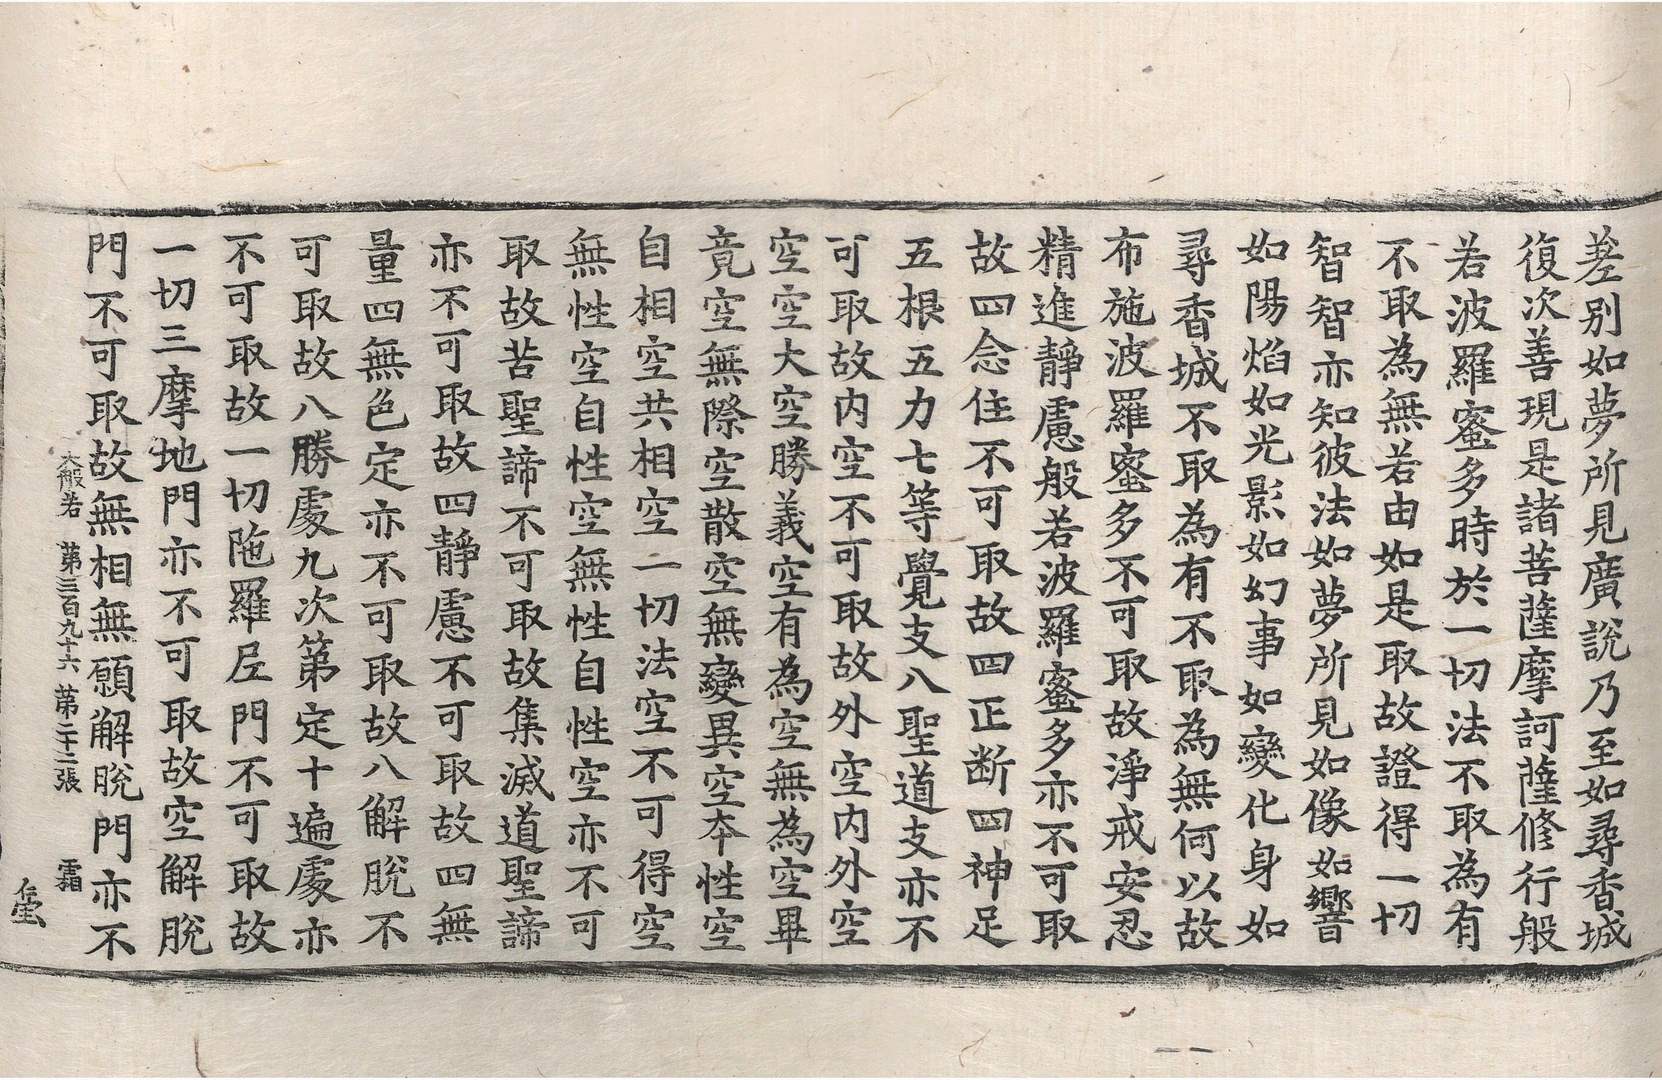 差別如夢所見廣說乃至如尋香城
復次善現是諸菩薩摩訶薩修行般
若波羅蜜多時於一切法不取為有
不取為無若由如是取故證得一切
智智亦知彼法如夢所見如像如響
如陽焰如光影如幻事如變化身如
尋香城不取為有不取為無何以故
布施波羅蜜多不可取故淨戒安忍
精進靜慮般若波羅蜜多亦不可取
故四念住不可取故四正斷四神足
五根五力七等覺支八聖道支亦不
可取故內空不可取故外空內外空
空空大空勝義空有為空無為空畢
竟空無際空散空無變異空本性空
自相空共相空一切法空不可得空
無性空自性空無性自性空亦不可
取故苦聖諦不可取故集滅道聖諦
亦不可取故四靜慮不可取故四無
量四無色定亦不可取故八解脫不
可取故八勝處九次第定十遍處亦
不可取故一切陁羅尼門不可取故
一切三摩地門亦不可取故空解脫
門不可取故無相無願解脫門亦不
大般若 第三百九十六 第二十二張 霜